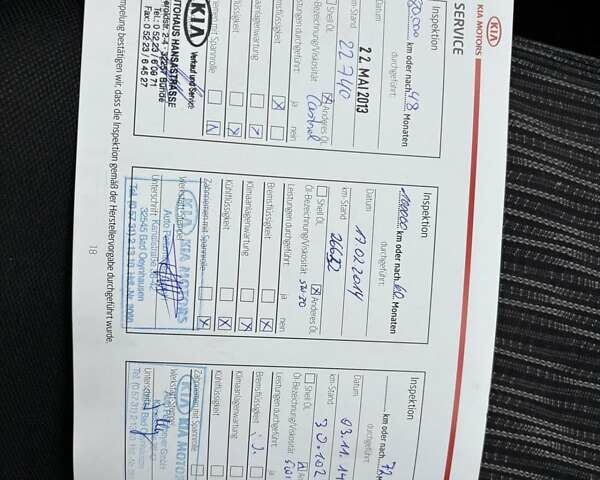 KIA
KIA MOTORS
SERVICE
Inspektion
km oder nach 48 Monaten
durchgeführt:
Datum
22. MAI 2013
km-Stand
22740
Shell Öl
Anderes Öl
Öl-Bezeichnung/Viskosität
Castrol
Leistungen durchgeführt:
ja
nein
Bremsflüssigkeit
Klimaanlagenwartung
Kühlflüssigkeit
Zahnriemen mit Spannrolle
KIA
Verkauf und Service
AUTOHAUS HANSASTRASSE
32257 Bünde
Tel.: 0 52 23 / 6 09 71
Fax: 0 52 23 / 6 45 27
Inspektion
100000 km oder nach 60 Monaten
durchgeführt:
Datum
17.02.2014
km-Stand
26672
Shell Öl
Anderes Öl
Öl-Bezeichnung/Viskosität
5W30
Leistungen durchgeführt:
ja
nein
Bremsflüssigkeit
Klimaanlagenwartung
Kühlflüssigkeit
Zahnriemen mit Spannrolle
KIA KIA MOTORS
Unterschrift
32545 Bad Oeynhausen
Inspektion
km oder nach 72
durchgeführt:
Datum
03.11.14
km-Stand
30.102
Shell Öl
Öl-Bezeichnung/Viskosität
Leistungen durchgeführt:
Bremsflüssigkeit
Klimaanlagenwartung
Kühlflüssigkeit
Zahnriemen mit Spannrolle
KIA KIA MOTOR
Unterschrift
mpelung bestätigen wir, dass die Inspektion gemäß der Herstellervorgabe durchgeführt wurde.
18